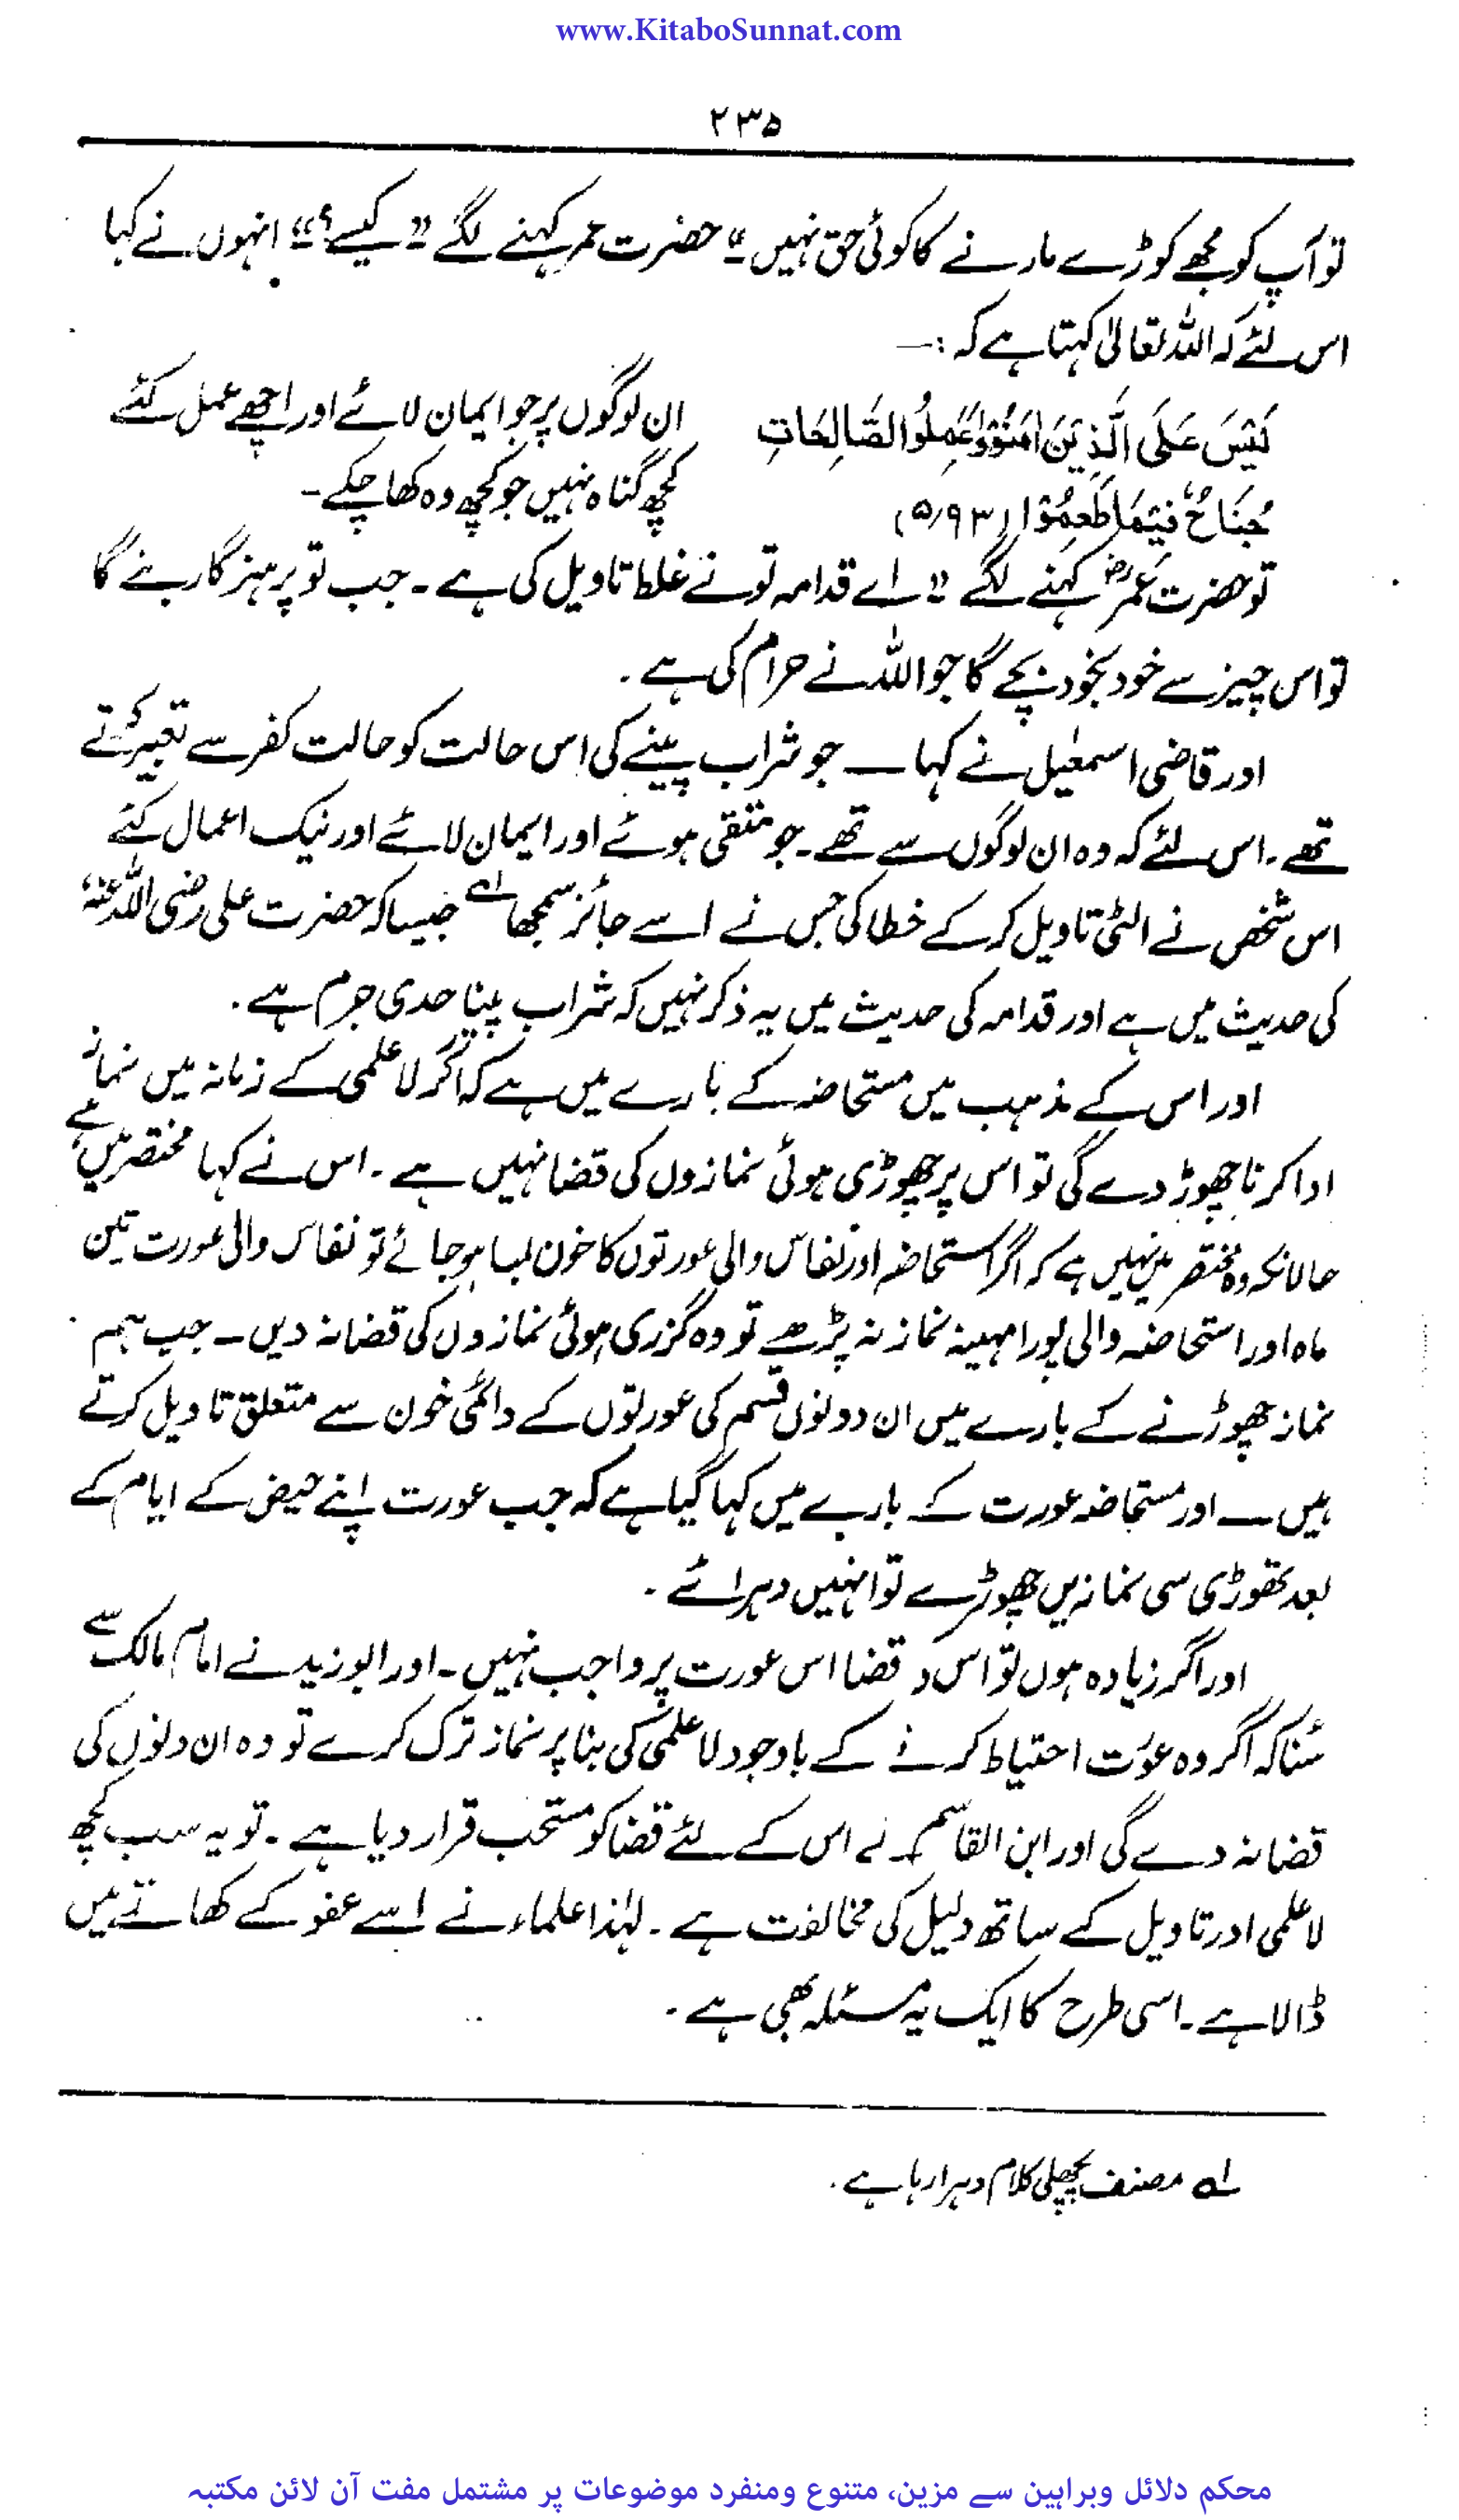 www.KitaboSunnat.com
۲۳۵
تو آپ کو مجھے کوڑے مارنے کا کوئی حق نہیں۔“ حضرت عمر کہنے لگے ”کیسے؟“ انہوں نے کہا
اس لئے کہ اللہ تعالیٰ کہتا ہے کہ :—
لَیْسَ عَلَی الَّذِیْنَ اٰمَنُوْا وَعَمِلُوا الصَّالِحَاتِ ان لوگوں پر جو ایمان لائے اور اچھے عمل کئے
جُنَاحٌ فِیْمَا طَعِمُوْا (۵/۹۳) کچھ گناہ نہیں جو کچھ وہ کھا چکے۔
تو حضرت عمرؓ کہنے لگے ”اے قدامہ تو نے غلط تاویل کی ہے۔ جب تو پرہیزگار بنے گا
تو اس چیز سے خود بخود بچے گا جو اللہ نے حرام کی ہے۔
اور قاضی اسمعٰیل نے کہا — جو شراب پینے کی اس حالت کو حالت کفر سے تعبیر کرتے
تھے۔ اس لئے کہ وہ ان لوگوں سے تھے۔ جو متقی ہوئے اور ایمان لائے اور نیک اعمال کئے
اس شخص نے الٹی تاویل کر کے خطا کی جس نے اسے جائز سمجھا۱ے جیسا کہ حضرت علی رضی اللہ عنہ
کی حدیث میں ہے اور قدامہ کی حدیث میں یہ ذکر نہیں کہ شراب پینا حدی جرم ہے۔
اور اس کے مذہب میں مستحاضہ کے بارے میں ہے کہ اگر لاعلمی کے زمانہ میں نماز
ادا کرنا چھوڑ دے گی تو اس پر چھوڑی ہوئی نمازوں کی قضا نہیں ہے۔ اس نے کہا مختصر میں ہے
حالانکہ وہ مختصر میں نہیں ہے کہ اگر استحاضہ اور نفاس والی عورتوں کا خون لمبا ہو جائے تو نفاس والی عورت تین
ماہ اور استحاضہ والی پورا مہینہ نماز نہ پڑھے تو وہ گزری ہوئی نمازوں کی قضا نہ دیں۔ جب ہم
نماز چھوڑنے کے بارے میں ان دونوں قسم کی عورتوں کے دائمی خون سے متعلق تاویل کرتے
ہیں — اور مستحاضہ عورت کے بارے میں کہا گیا ہے کہ جب عورت اپنے حیض کے ایام کے
بعد تھوڑی سی نمازیں چھوڑے تو انہیں دہرائے۔
اور اگر زیادہ ہوں تو اس قضا اس عورت پر واجب نہیں۔ اور ابوزید نے امام مالک سے
سُنا کہ اگر وہ عورت احتیاط کرنے کے باوجود لاعلمی کی بنا پر نماز ترک کرے تو وہ ان دنوں کی
قضا نہ دے گی اور ابن القاسم نے اس کے لئے قضا کو مستحب قرار دیا ہے۔ تو یہ سب کچھ
لاعلمی اور تاویل کے ساتھ دلیل کی مخالفت ہے۔ لہٰذا علماء نے اسے عفو کے کھاتے میں
ڈالا ہے۔ اسی طرح کا ایک یہ مسئلہ بھی ہے۔
۱ے مصنف پچھلی کلام دہرا رہا ہے۔
محکم دلائل وبراہین سے مزین، متنوع ومنفرد موضوعات پر مشتمل مفت آن لائن مکتبہ